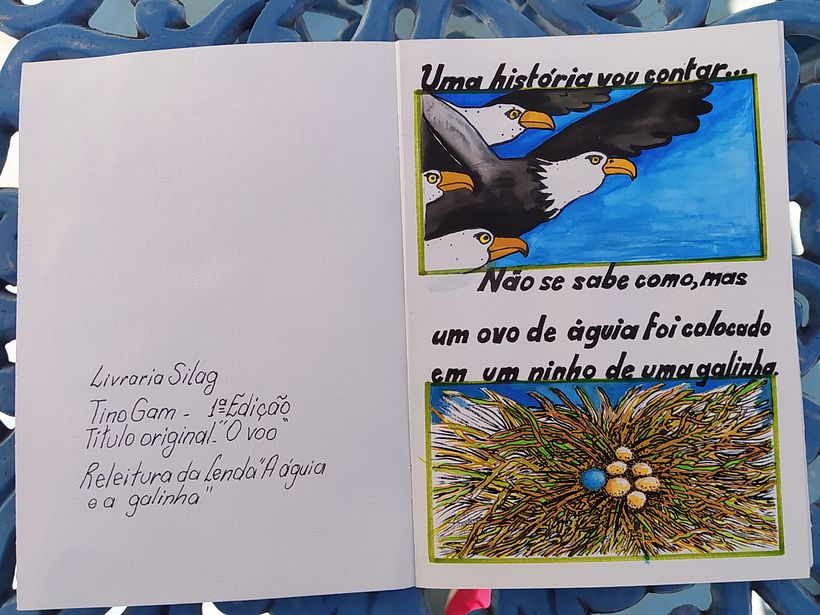 Livraria Silag
Tino Gam - 1ª Edição
Titulo original- "O voo"
Releitura da Lenda "A águia
e a galinha"
Uma história vou contar...
Não se sabe como, mas
um ovo de águia foi colocado
em um ninho de uma galinha.